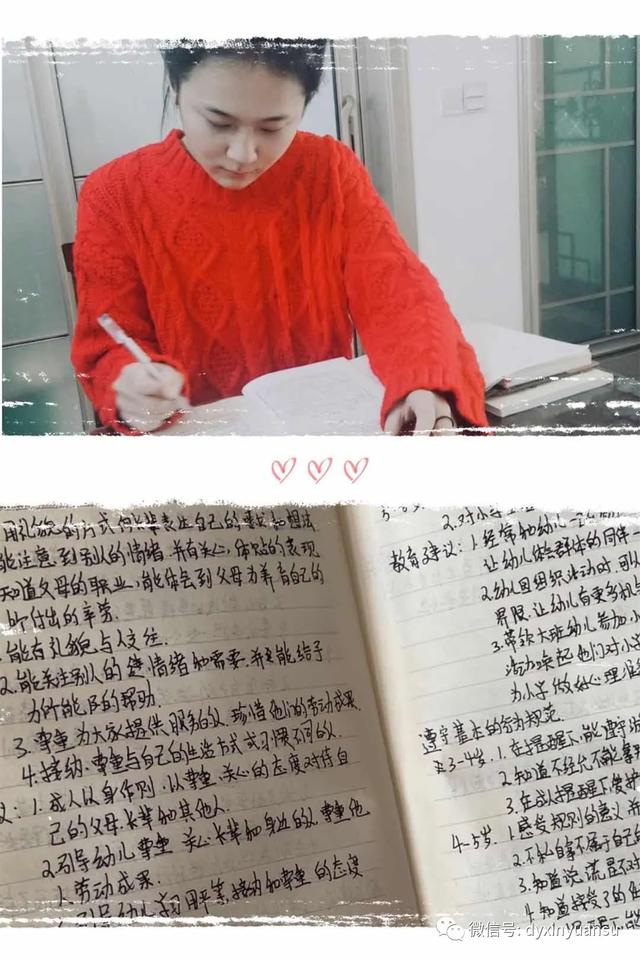 用礼貌的方式向长辈表达自己的要求和想法
能注意到别人的情绪,并有关心,体贴的表现
知道父母的职业,能体会到父母为养育自己的
所付出的辛劳.
能有礼貌与人交往.
2.能关注别人的情绪和需要.并能给予
力所能及的帮助.
3.尊重为大家提供服务的人.珍惜他们的劳动成果.
4.接纳.尊重与自己的生活方式或习惯不同的人.
1.成人以身作则.以尊重.关心的态度对待自
己的父母.长辈和其他人.
2.引导幼儿尊重.关心长辈和身边的人.尊重他
人劳动成果.
引导幼儿学习用平等,接纳和尊重的态度
2.对小学
教育建议:1.经常和幼儿一
让幼儿体会群体的同伴
2.幼儿园组织活动时,可以
界限.让幼儿有更多机
3.带领大班幼儿参加小
活动.唤起他们对小学
为小学做好心理准
遵守基本的行为规范.
3-4岁.1.在提醒下,能遵守游
2.知道不经允许不能拿
3.在成人提醒下,爱护
4-5岁.1.感受规则的意义,并
2.不私自拿不属于自己的
3.知道说谎是不对
4.知道接受了的任
微信号: dyxinyuansu